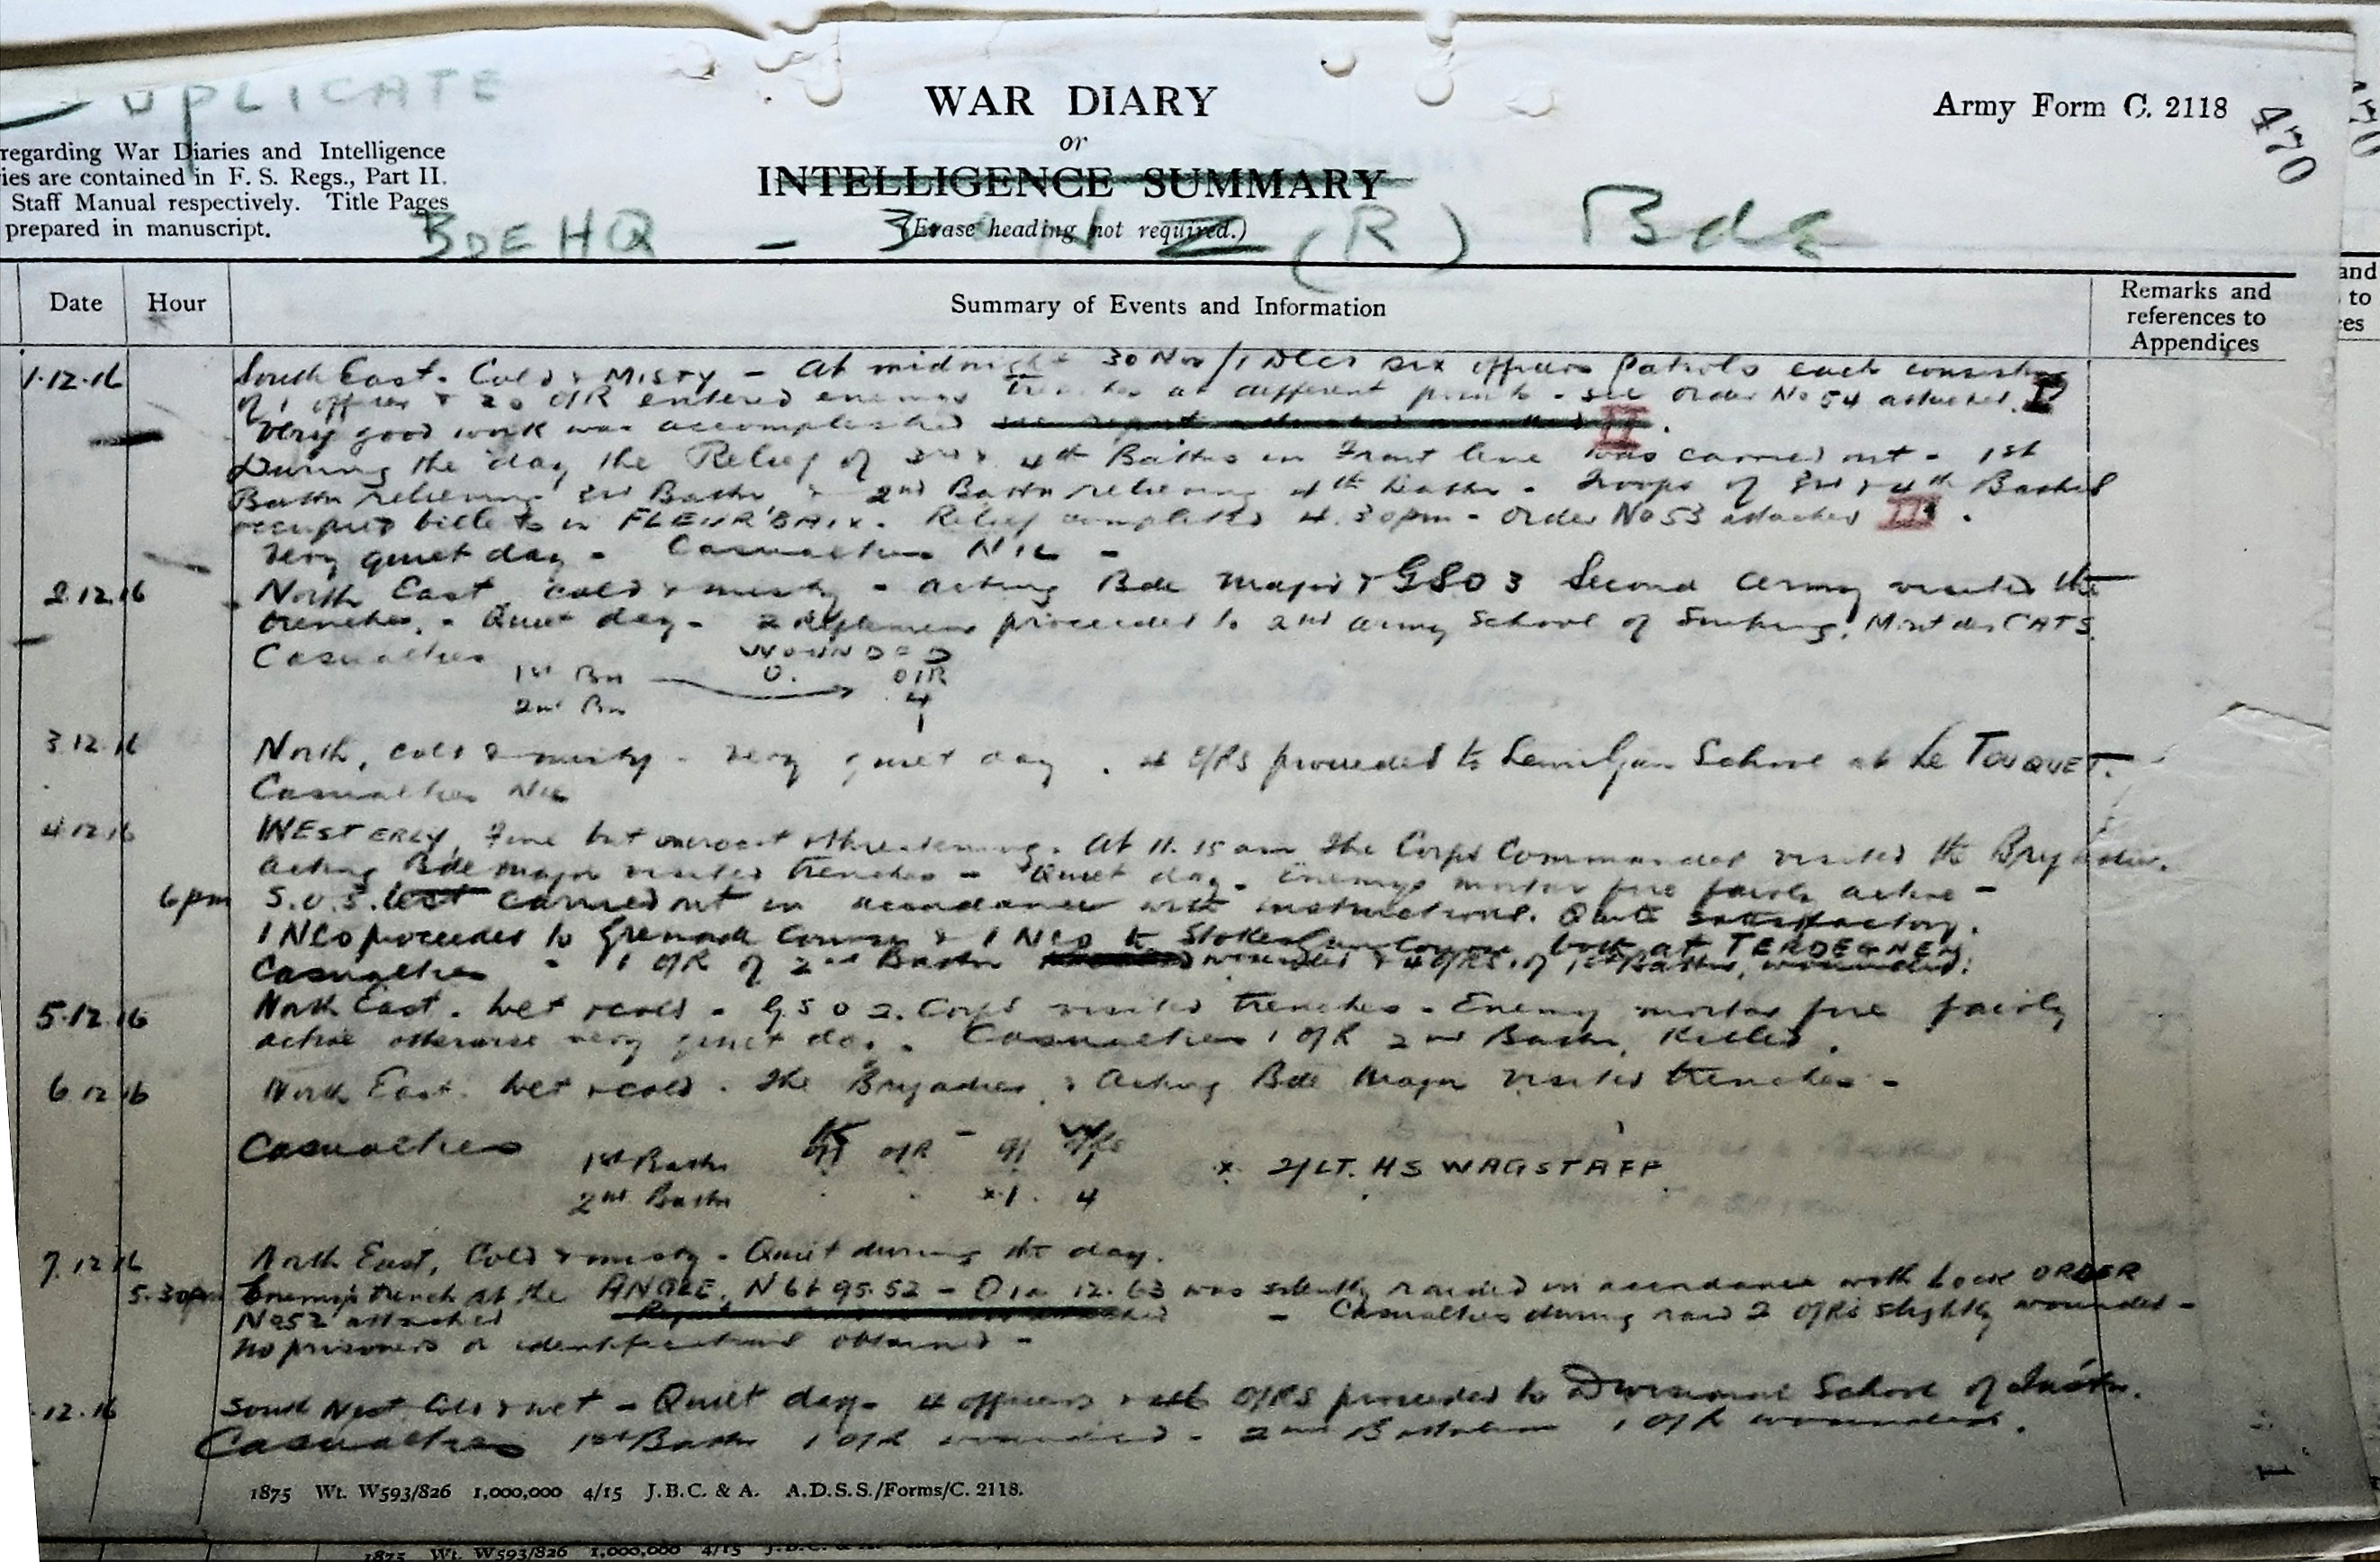 DUPLICATE
WAR DIARY
Army Form C. 2118
470
or
regarding War Diaries and Intelligence
ies are contained in F. S. Regs., Part II.
Staff Manual respectively. Title Pages
prepared in manuscript.
INTELLIGENCE SUMMARY
(Erase heading not required.)
BDE HQ - 3 N Z (R) Bde
Date
Hour
Summary of Events and Information
Remarks and
references to
Appendices
1.12.16 South East. Cold & MISTY - At midnight 30 Nov/1 Dec six officers patrols each consisting
of 1 officer & 20 O/R entered enemys trenches at different points - see Order No 54 attached.
Very good work was accomplished II.
During the day the Relief of 3rd & 4th Battns in Front line was carried out - 1st
Battn relieving 3rd Battn, & 2nd Battn relieving 4th Battn. Troops of 3rd & 4th Battns
occupied billets in FLEUR'BAIX. Relief completed 4.30pm - Order No 53 attached III.
Very quiet day - Casualties NIL -
2.12.16 North East, cold & misty - acting Bde Major & GSO 3 Second Army visited the
trenches. - Quiet day - 2 proceeded to 2nd Army School of Mont des CATS.
Casualties WOUNDED
1st Bn O. O/R
2nd Bn 4
1
3.12.16 North, cold & misty - Very quiet day. 4 O/Rs proceeded to Lewis Gun School at Le TOUQUET.
Casualties Nil
4.12.16 WESTERLY, Fine but overcast & threatening. At 11.15 am the Corps Commander visited the Brigadier.
Acting Bde Major visited trenches - Quiet day. Enemys mortar fire fairly active -
6pm S.O.S. test carried out in accordance with instructions. Quite satisfactory.
1 NCO proceeded to Grenade Course & 1 NCO to Stokes Gun Course both at TERDEGHEM
Casualties - 1 O/R of 2nd Battn wounded & 4 O/Rs. of 1st Battn, wounded.
5.12.16 North East. Wet & cold - GSO 2. Corps visited trenches - Enemy mortar fire fairly
active otherwise very quiet day. Casualties 1 O/R 2nd Battn, Killed.
6.12.16 North East. Wet & cold. The Brigadier & Acting Bde Major visited trenches -
Casualties K W
O/ O/R - O/ O/Rs
1st Battn 1 x 2/LT. HS WAGSTAFF
2nd Battn . . x1. 4
7.12.16 North East, Cold & misty - Quiet during the day.
5.30pm Enemy's trench at the ANGLE, N6b 95.52 - O1a 12.63 was silently raided in accordance with ORDER
No 52 attached - Casualties during raid 2 O/Rs slightly wounded -
No prisoners or identifications obtained -
.12.16 South West Cold & wet - Quiet day - 4 officers O/Rs proceeded to Divisional School of Instn.
Casualties 1st Battn 1 O/R wounded - 2nd Battalion 1 O/R wounded.
1875 Wt. W593/826 1,000,000 4/15 J.B.C. & A. A.D.S.S./Forms/C. 2118.
1875 Wt. W593/826 1,000,000 4/15